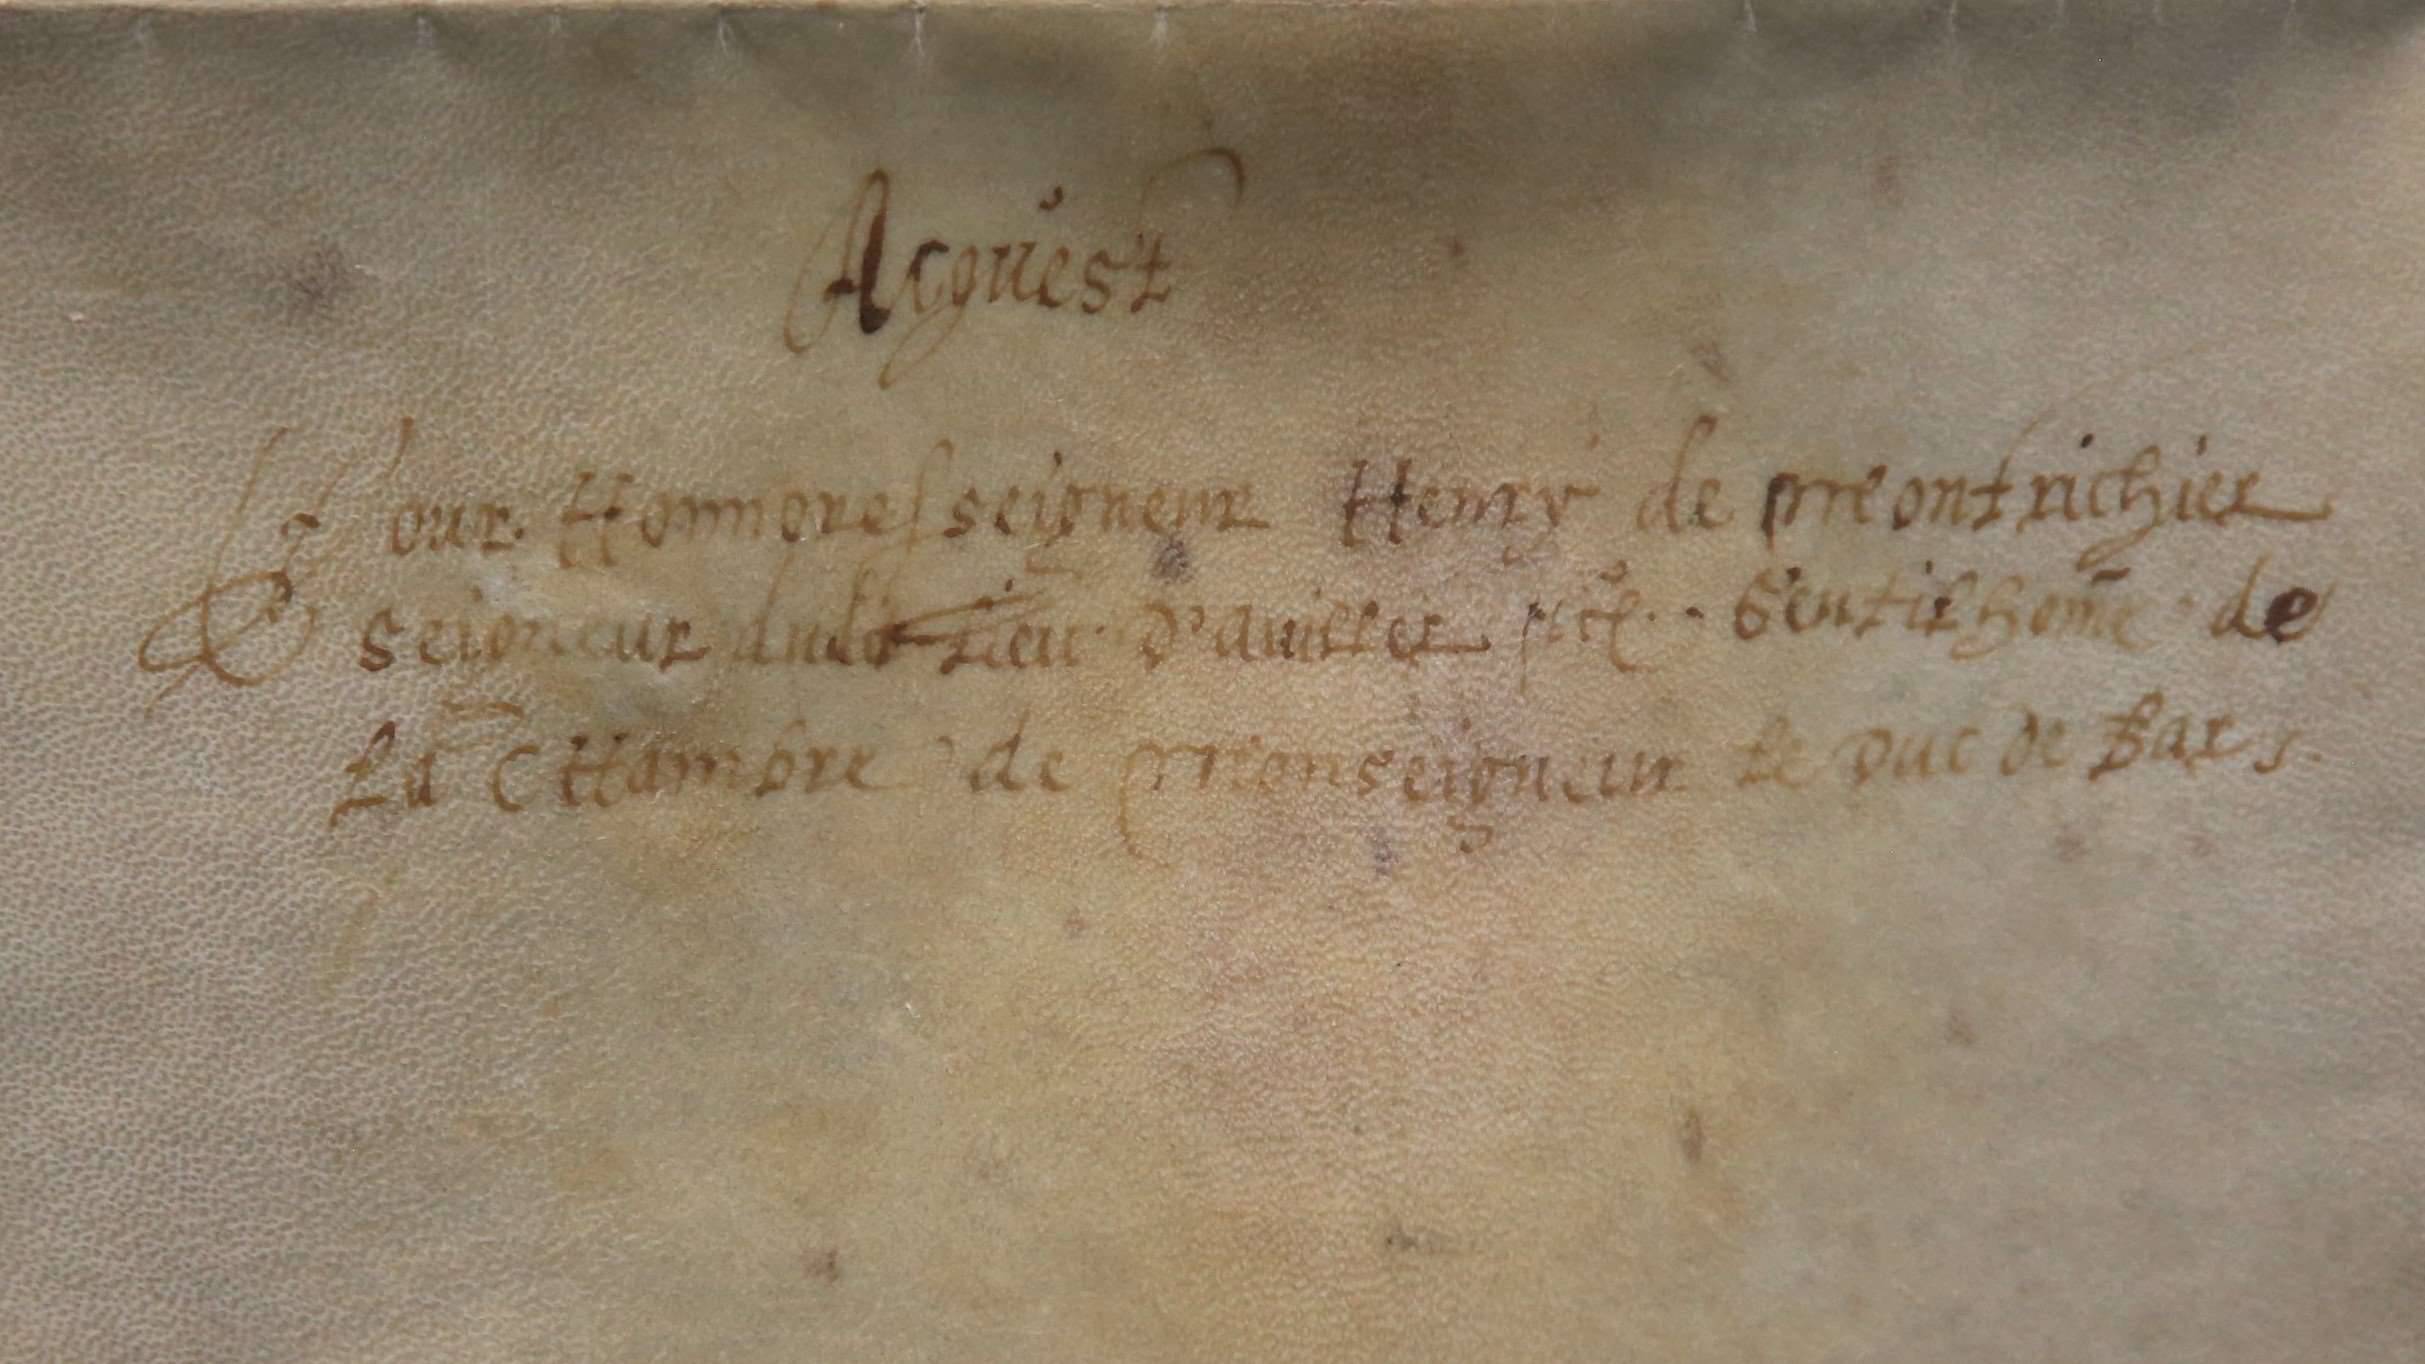 Acquest
Pour Honnore seigneur Henry de Montrichier
seigneur dudit lieu d'auiller &c. Gentilhome de
La Chambre de Monseigneur le Duc de Bar